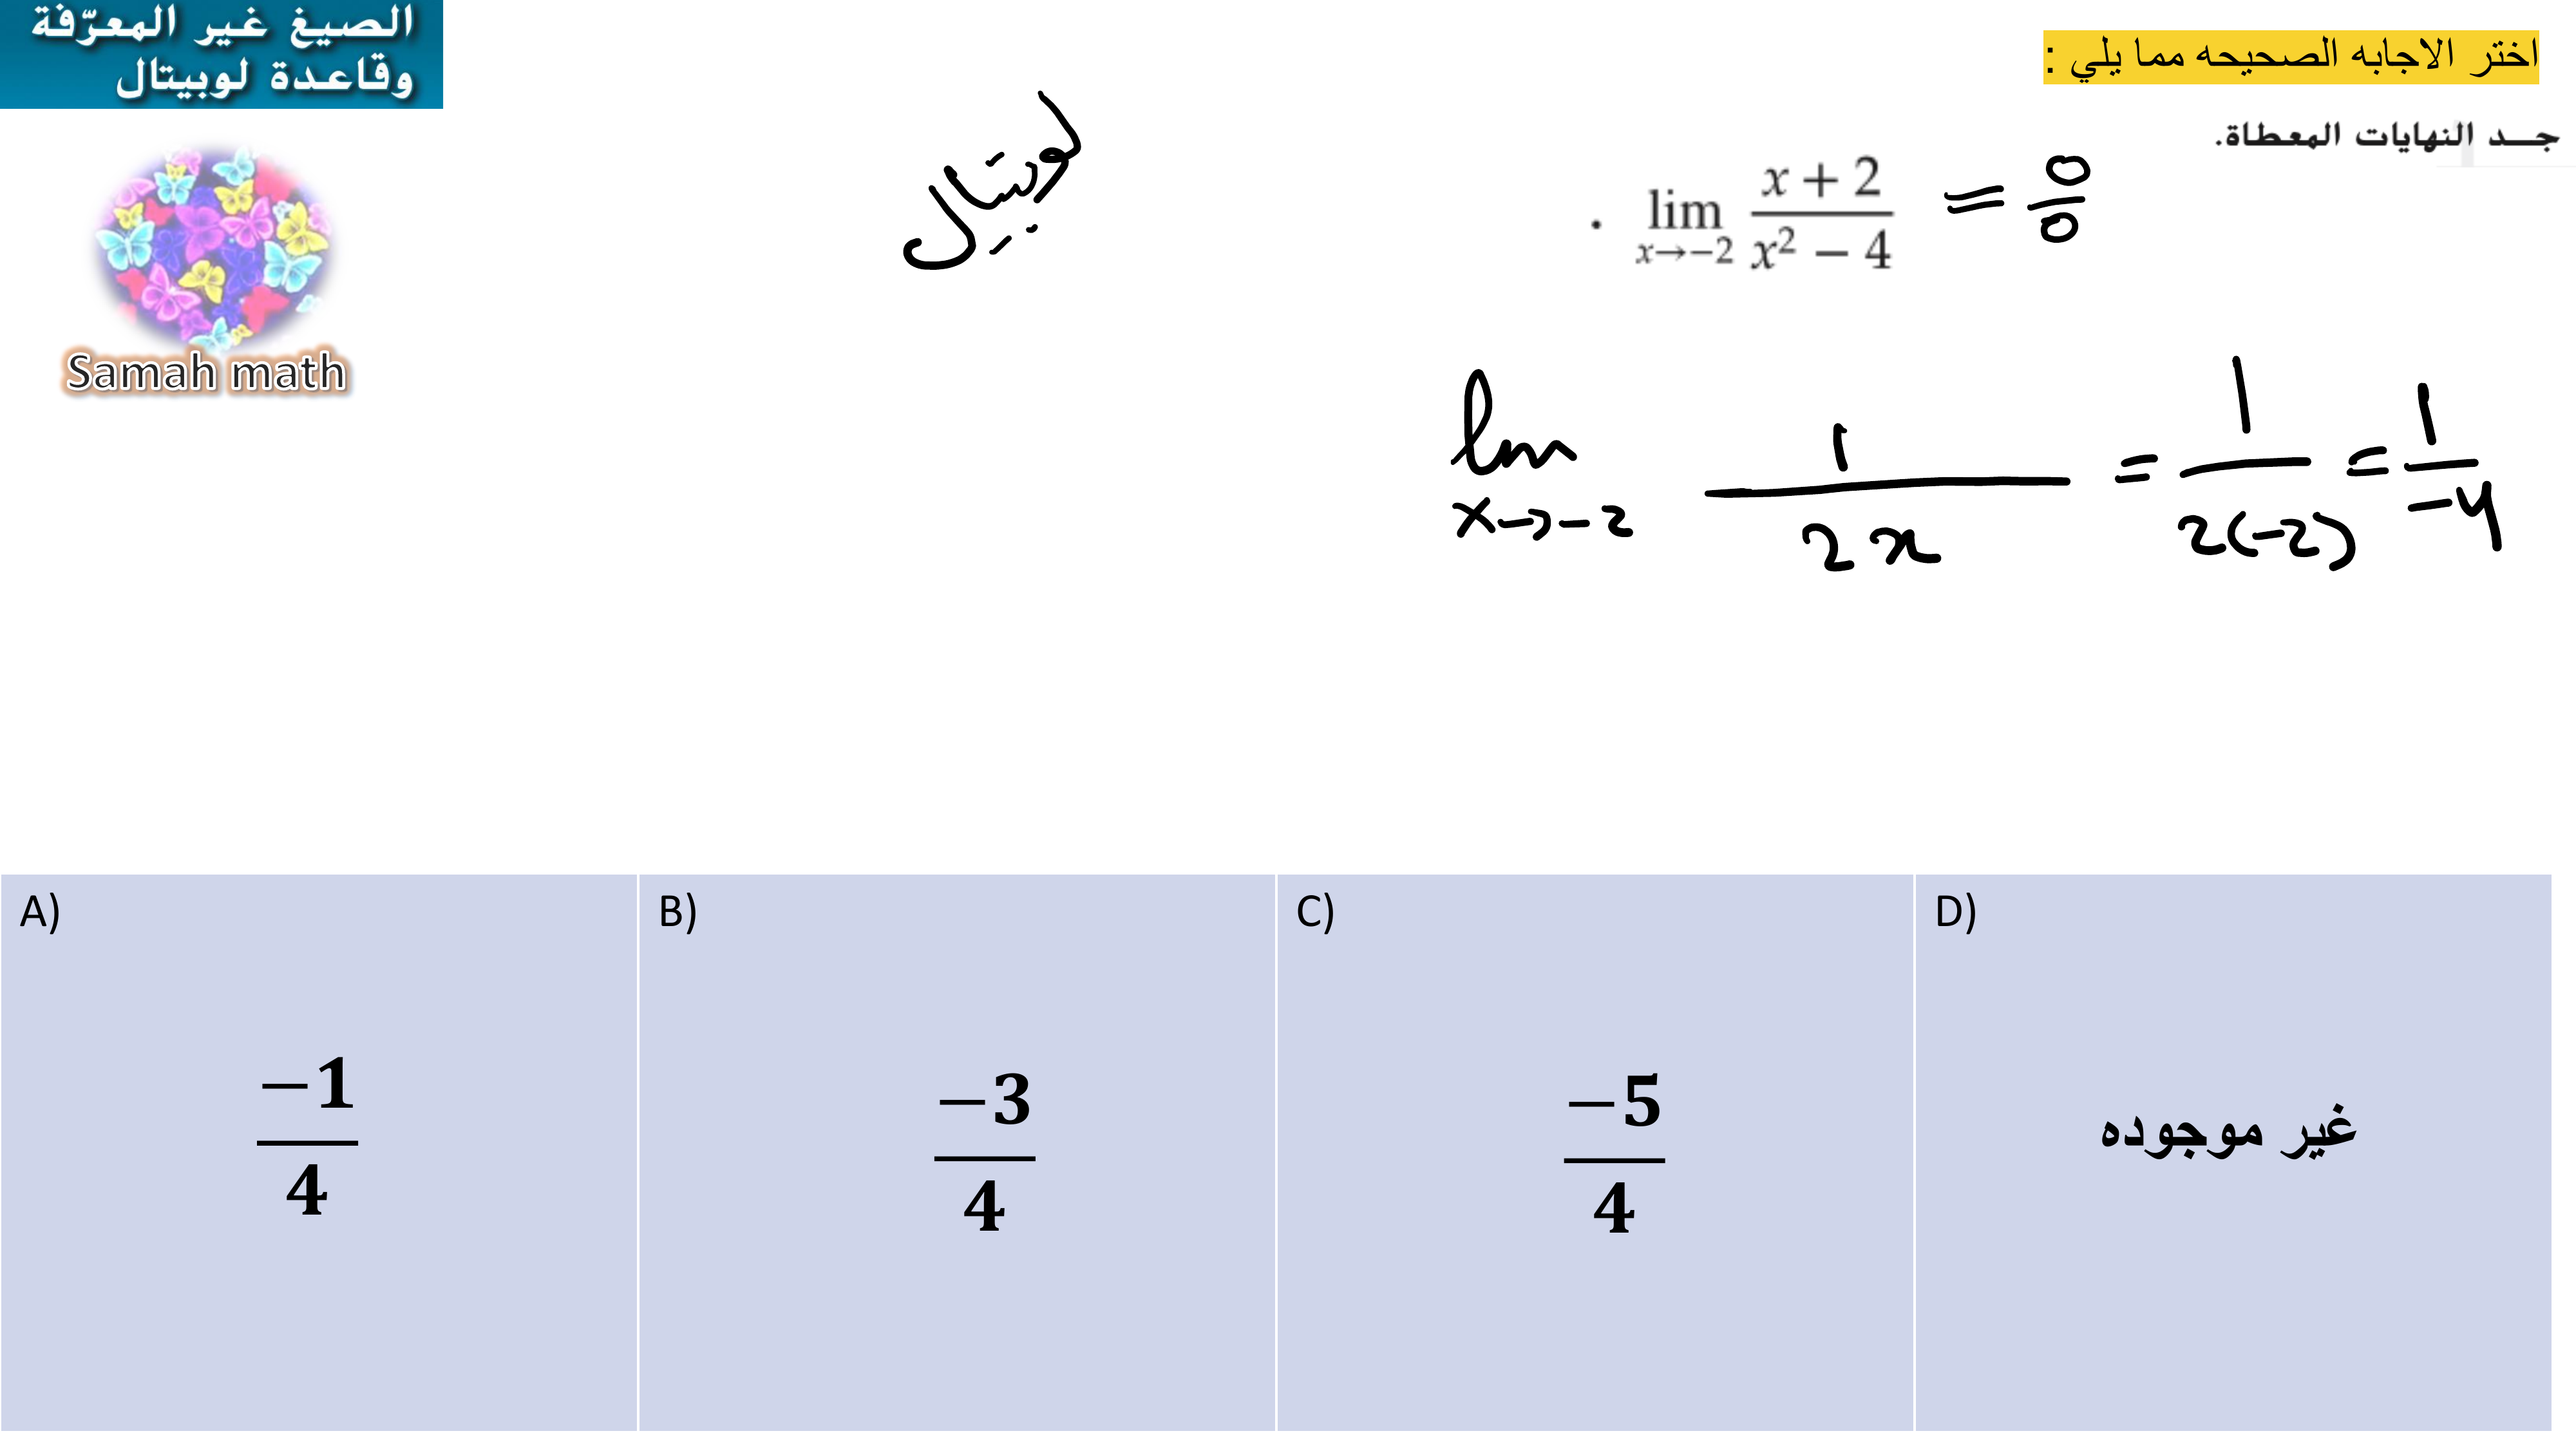 الصيغ غير المعرّفة
وقاعدة لوبيتال
Samah math
اختر الاجابه الصحيحه مما يلي :
جد النهايات المعطاة.
لوبيتال
. lim x→-2 (x + 2)/(x² − 4) = 0/0
lim x→-2 1/(2x) = 1/(2(-2)) = 1/-4
A)
−1/4
B)
−3/4
C)
−5/4
D)
غير موجوده